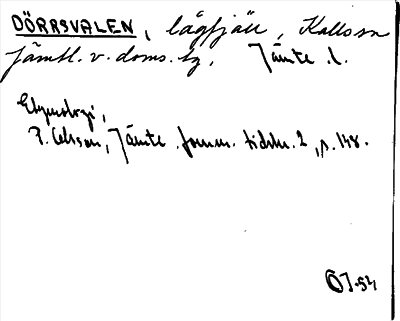 DÖRRSVALEN, lågfjäll, Kalls sn
Jämtl. v. doms. tg. Jämtl. l.
Etymologi,
P. Olsson, Jämtl. fornm. tidskr. 2, p. 148.
ÖJ-54